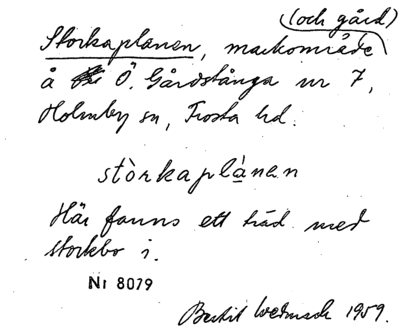 (och gård)
Storkaplanen, markområde
å Ö. Gårdstånga nr 7,
Holmby sn, Frosta hd.
stòrkaplànen
Här fanns ett träd med
storkbo i.
Nr 8079
Bertil 1959.